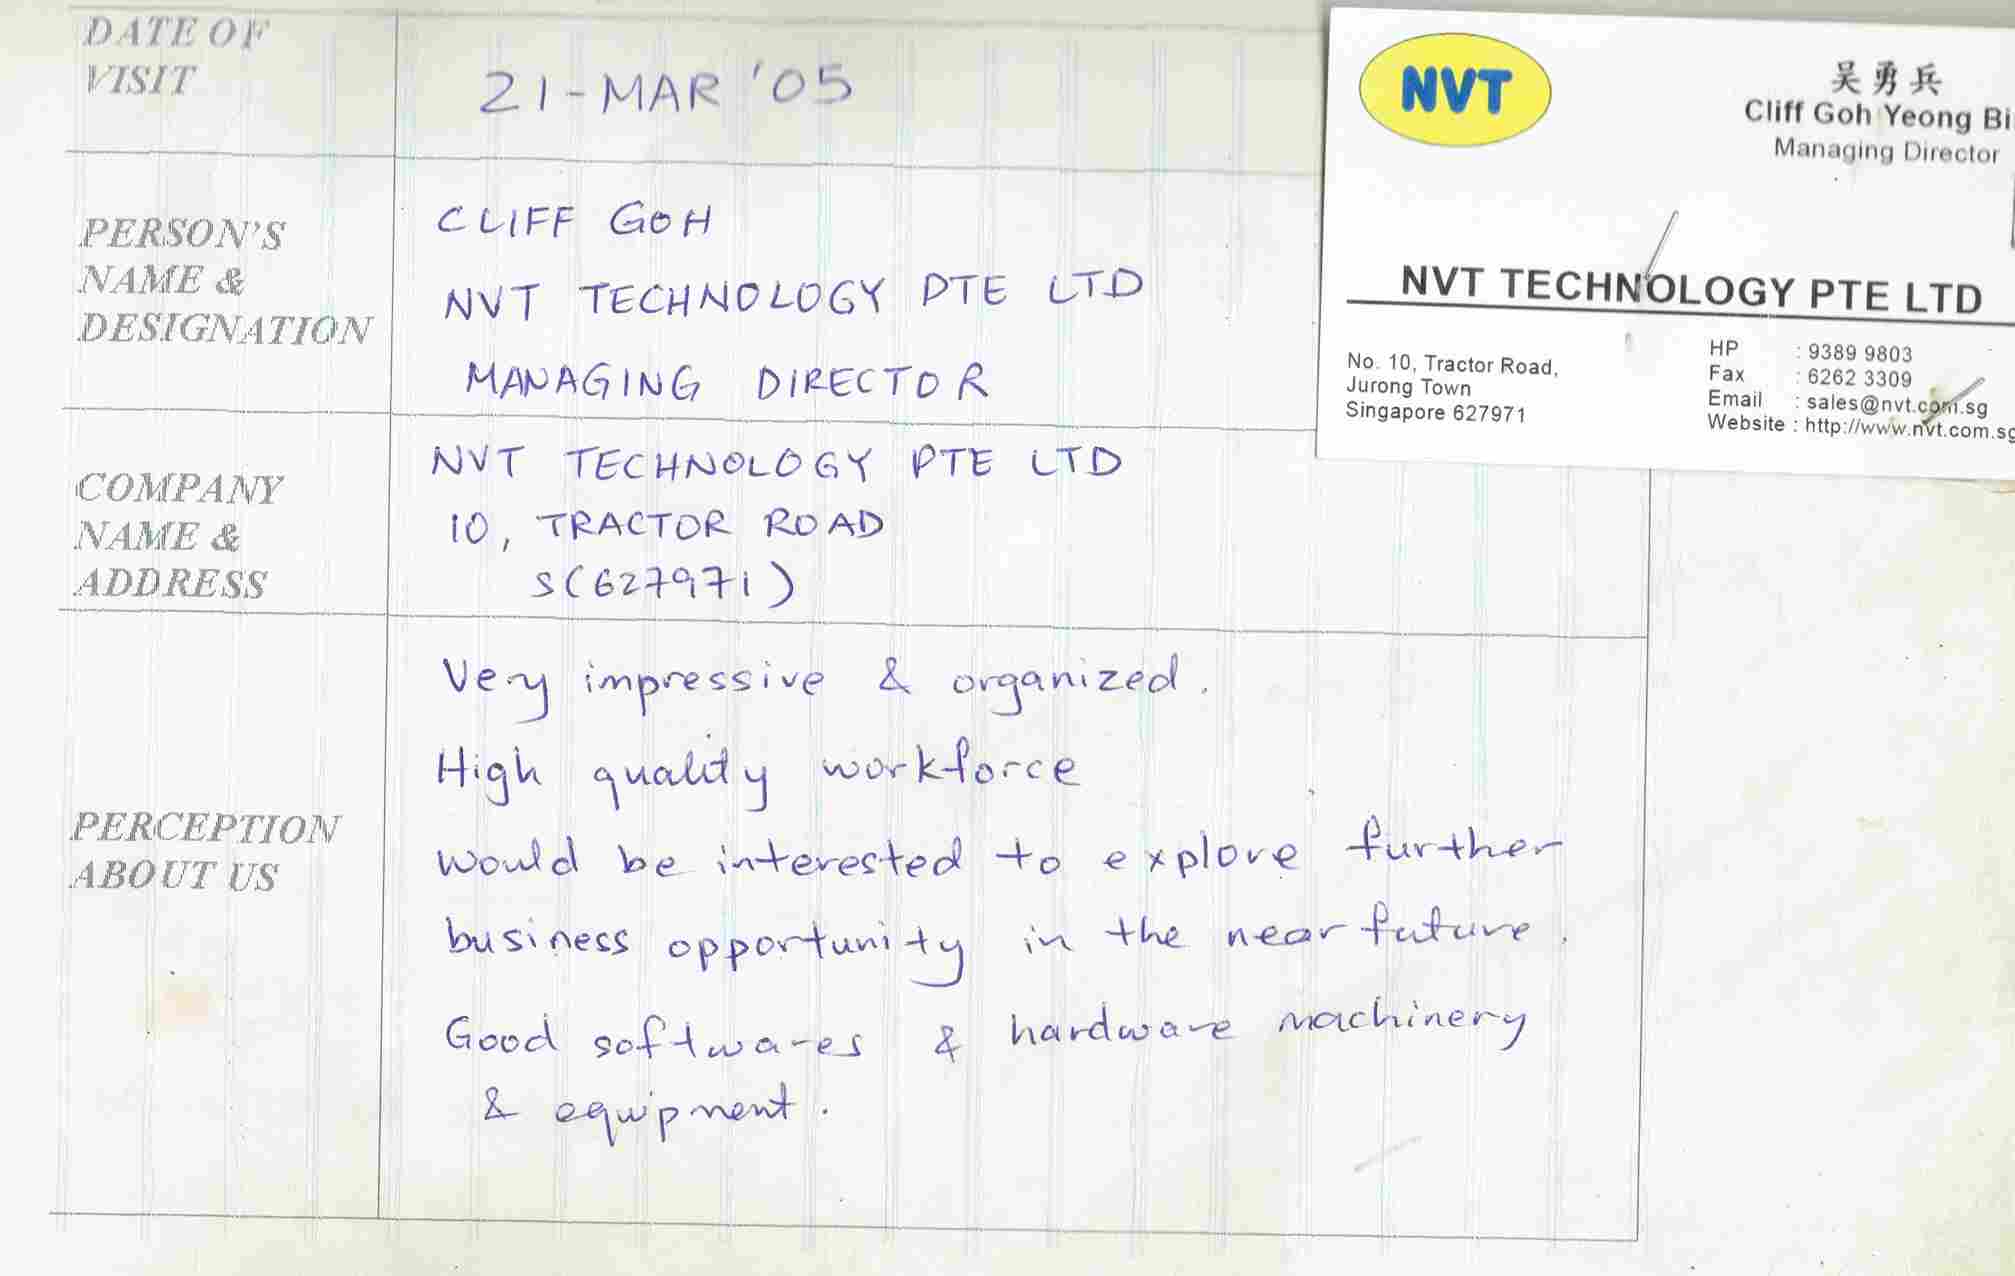 DATE OF
VISIT
21-MAR '05
PERSON'S
NAME &
DESIGNATION
CLIFF GOH
NVT TECHNOLOGY PTE LTD
MANAGING DIRECTOR
COMPANY
NAME &
ADDRESS
NVT TECHNOLOGY PTE LTD
10, TRACTOR ROAD
S(627971)
PERCEPTION
ABOUT US
Very impressive & organized.
High quality workforce
would be interested to explore further
business opportunity in the near future.
Good softwares & hardware machinery
& equipment.
NVT
吴勇兵
Cliff Goh Yeong Bi
Managing Director
NVT TECHNOLOGY PTE LTD
No. 10, Tractor Road,
Jurong Town
Singapore 627971
HP : 9389 9803
Fax : 6262 3309
Email : sales@nvt.com.sg
Website : http://www.nvt.com.sg